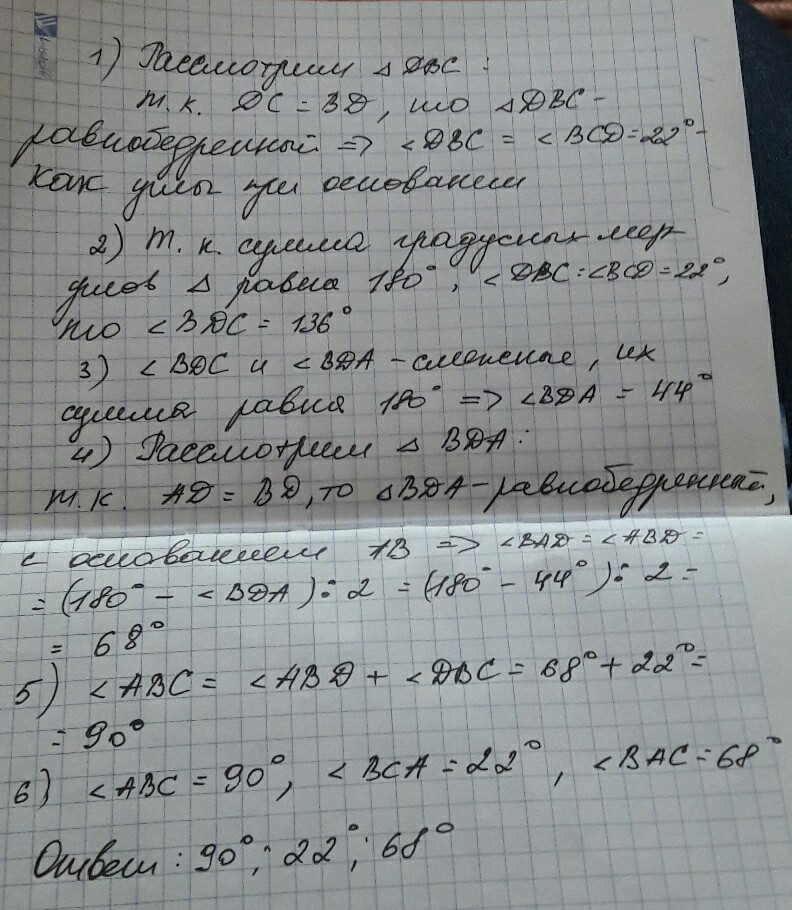 1) Рассмотрим △ DBC :
т.к. DC = BD, то △DBC -
равнобедренный => ∠DBC = ∠BCD=22° -
как углы при основании
2) т. к. сумма градусных мер
углов △ равна 180°, ∠DBC=∠BCD=22°,
то ∠BDC = 136°
3) ∠BDC и ∠BDA - смежные, их
сумма равна 180° => ∠BDA = 44°
4) Рассмотрим △ BDA :
т.к. AD = BD, то △BDA - равнобедренный,
с основанием AB => ∠BAD = ∠ABD =
= (180° - ∠BDA) : 2 = (180° - 44°) : 2 =
= 68°
5) ∠ABC = ∠ABD + ∠DBC = 68° + 22° =
= 90°
6) ∠ABC = 90°, ∠BCA = 22°, ∠BAC = 68°
Ответ : 90°; 22°; 68°